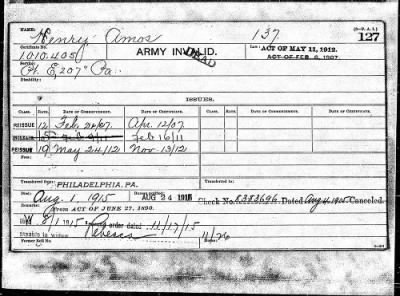 NAME: Henry Amos 137 (3—P. A. I.)
127
Certificate No. 1,010,405 ARMY INVALID. DEAD Law: ACT OF MAY 11, 1912.
ACT OF FEB. 6, 1907.
Service: Co. E, 207" Pa.
Disability:
ISSUES.
CLASS. RATE. DATE OF COMMENCEMENT. DATE OF CERTIFICATE. CLASS. RATE. DATE OF COMMENCEMENT. DATE OF CERTIFICATE.
REISSUE 12 Feb. Apr. 12/07
Feb 16/11
REISSUE 19 May 24/12 Nov. 13/12
Transferred from: PHILADELPHIA, PA. Transferred to:
Died: Aug. 1, 1915 Bureau notified: AUG 24 1915 Check No. 8383696 Dated Aug 4, 1915 Canceled.
Remarks: FROM ACT OF JUNE 27, 1890.
8/1 1915 order dated 11/17/15
Former Roll No. Rebecca 11/26